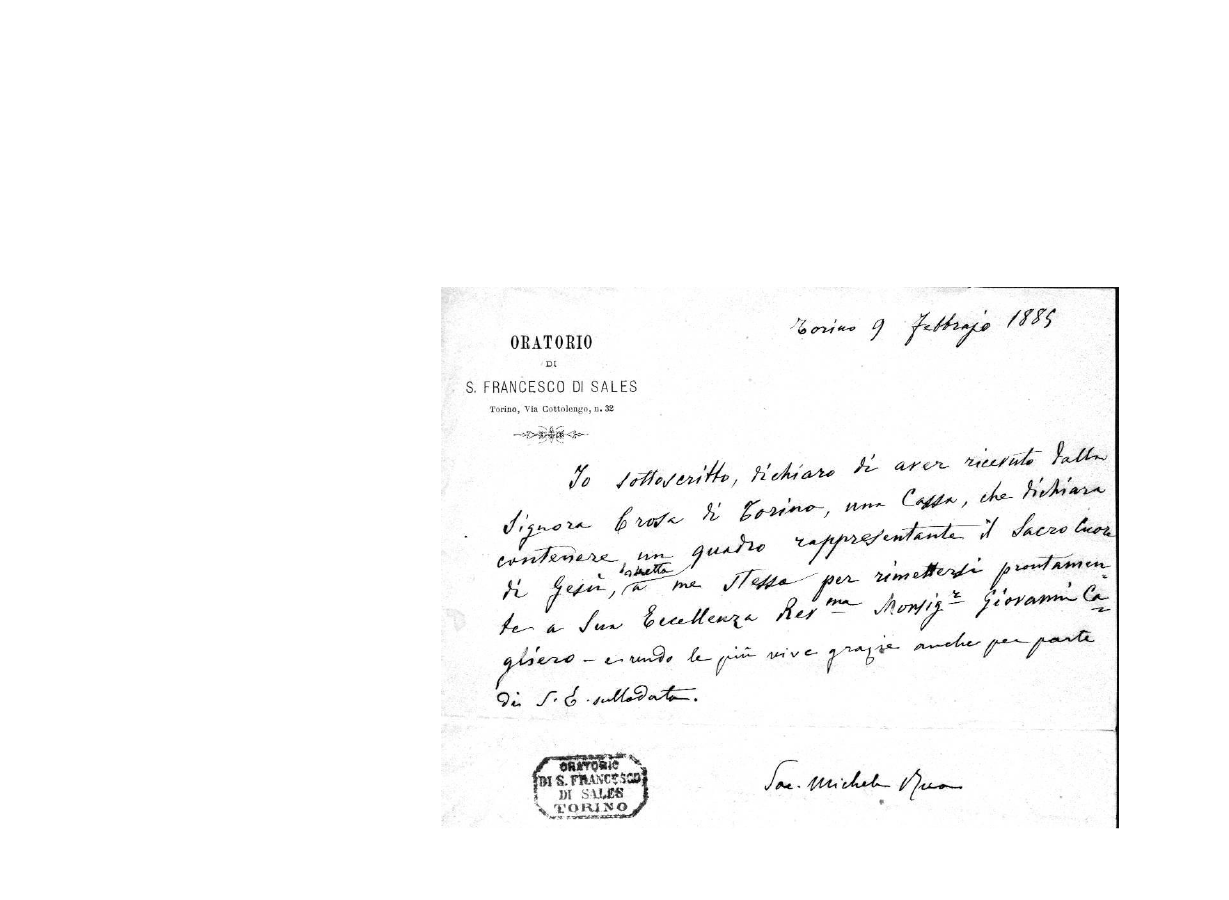 Torino 9 Febbrajo 1885
ORATORIO
DI
S. FRANCESCO DI SALES
Torino, Via Cottolengo, n. 32
Io sottoscritto, dichiaro di aver ricevuto dalla
Signora Crosa di Torino, una Cassa, che dichiara
contenere un quadro rappresentante il Sacro Cuore
di Gesù, diretta a me stessa per rimettersi prontamen-
te a Sua Eccellenza Revma Monsigr Giovanni Ca=
gliero – e rendo le più vive grazie anche per parte
di S. E. sullodata.
Sac. Michele Rua
ORATORIO
DI S. FRANCESCO
DI SALES
TORINO